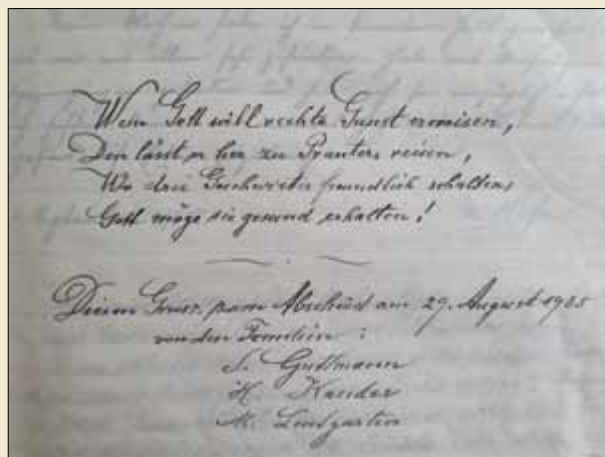 Wem Gott will rechte Gunst erweisen,
Den lässt er hier zu Pranters reisen,
Wo drei Geschwister freundlich schalten
Gott möge sie gesund erhalten!
Diesen Gruss zum Abschied am 29. August 1905
von den Familien:
S. Guttmann
H. Kander
M.